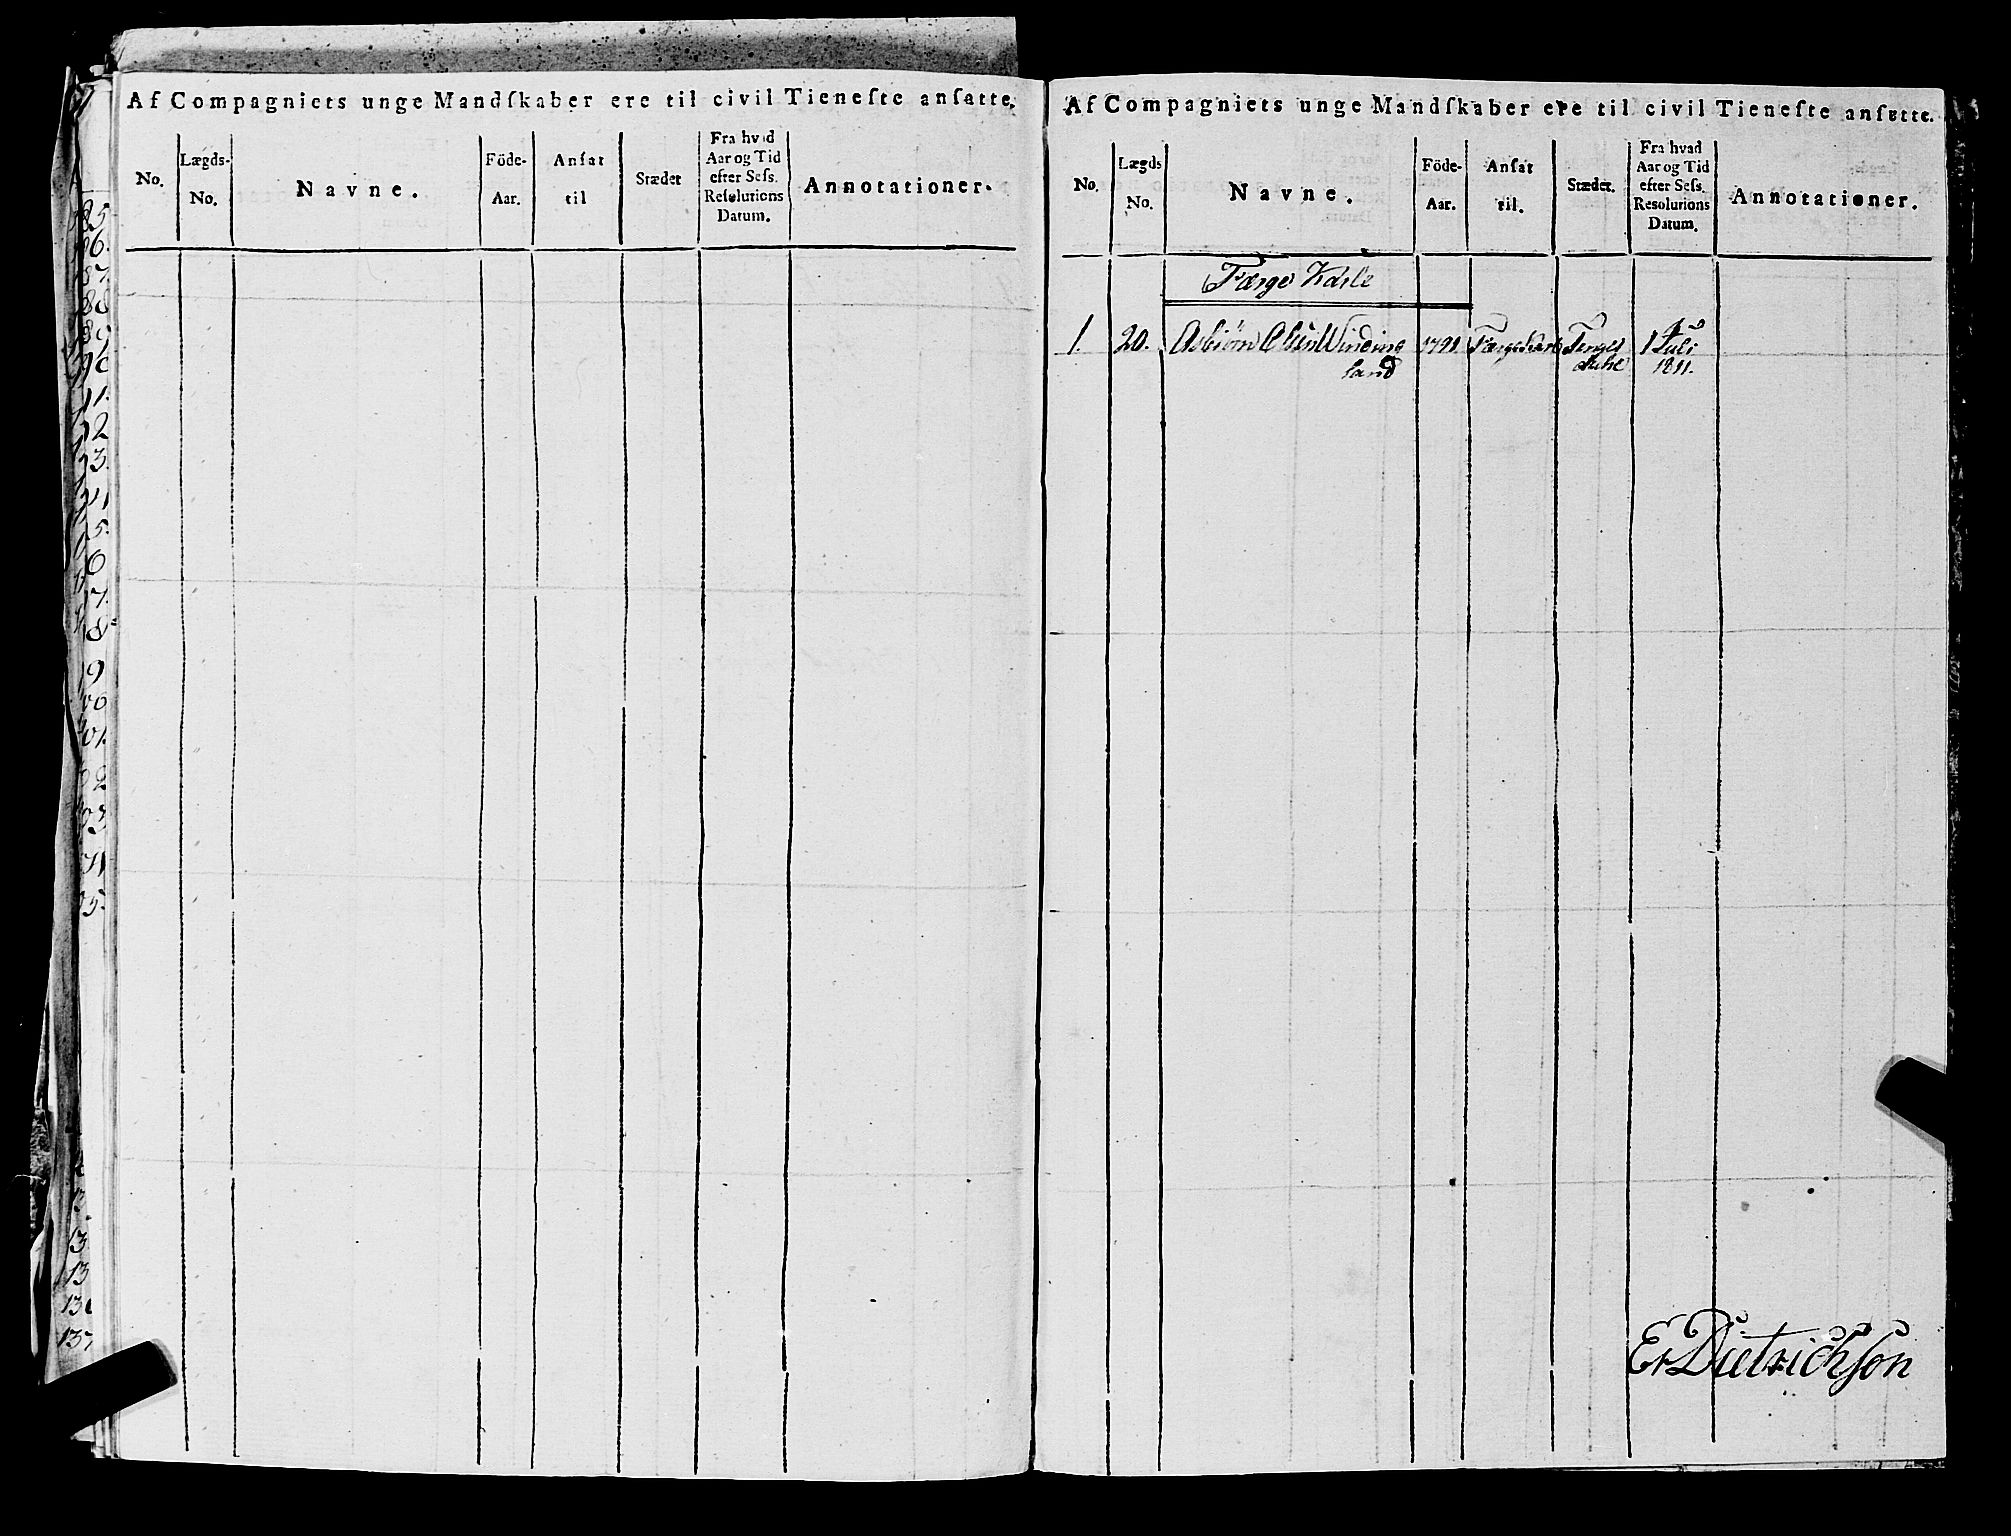 Af Compagniets unge Mandſkaber ere til civil Tieneſte anſatte.
No.
Lægds-
No.
Navne.
Föde-
Aar.
Anſat
til
Stædet
Fra hvad
Aar og Tid
efter Seſs.
Reſolutions
Datum.
Annotationer.
85.
86.
87.
88
89
90
91.
92
93.
94
95.
96
97.
98
99
100
101.
102
103
104
105.
13
13
13
137
Af Compagniets unge Mandſkaber ere til civil Tieneſte anſatte.
No.
Lægds
No.
Navne.
Föde-
Aar.
Anſat
til.
Stædet.
Fra hvad
Aar og Tid
efter Seſs.
Reſolutions
Datum.
Annotationer.
Færge Karle
1. 20. Asbiörn Olsen Vindine 1791. Færge Karl 1 Juli
land 1811.
Er Dietrichſon